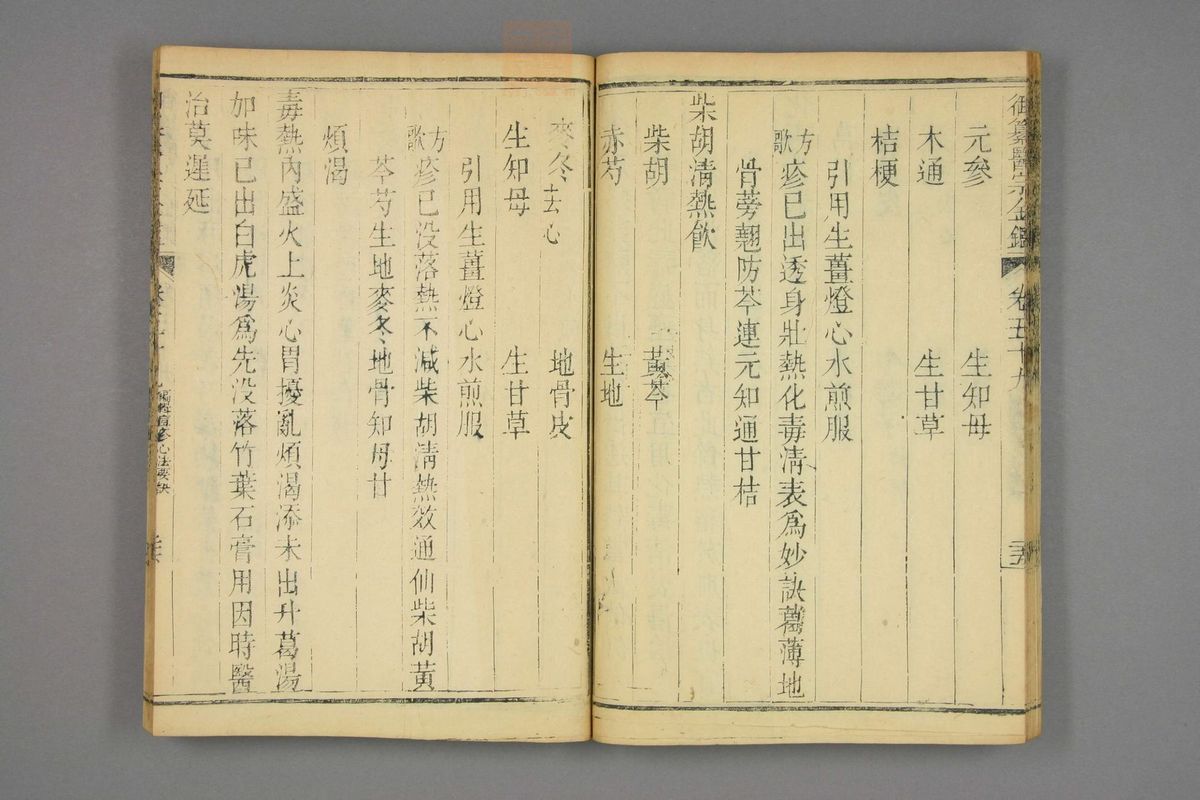 御纂醫宗金鑑 卷五十九 二五
元參 生知母
木通 生甘草
桔梗
引用生薑燈心水煎服
方歌 疹已出透身壯熱化毒清表爲妙訣葛薄地
骨蒡翹防芩連元知通甘桔
柴胡清熱飲
柴胡 黃芩
赤芍 生地
麥冬去心 地骨皮
生知母 生甘草
引用生薑燈心水煎服
方歌 疹已没落熱不減柴胡清熱效通仙柴胡黃
芩芍生地麥冬地骨知母甘
煩渴
毒熱內盛火上炎心胃擾亂煩渴添未出升葛湯
加味已出白虎湯爲先没落竹葉石膏用因時醫
治莫遲延
痘疹心法要訣